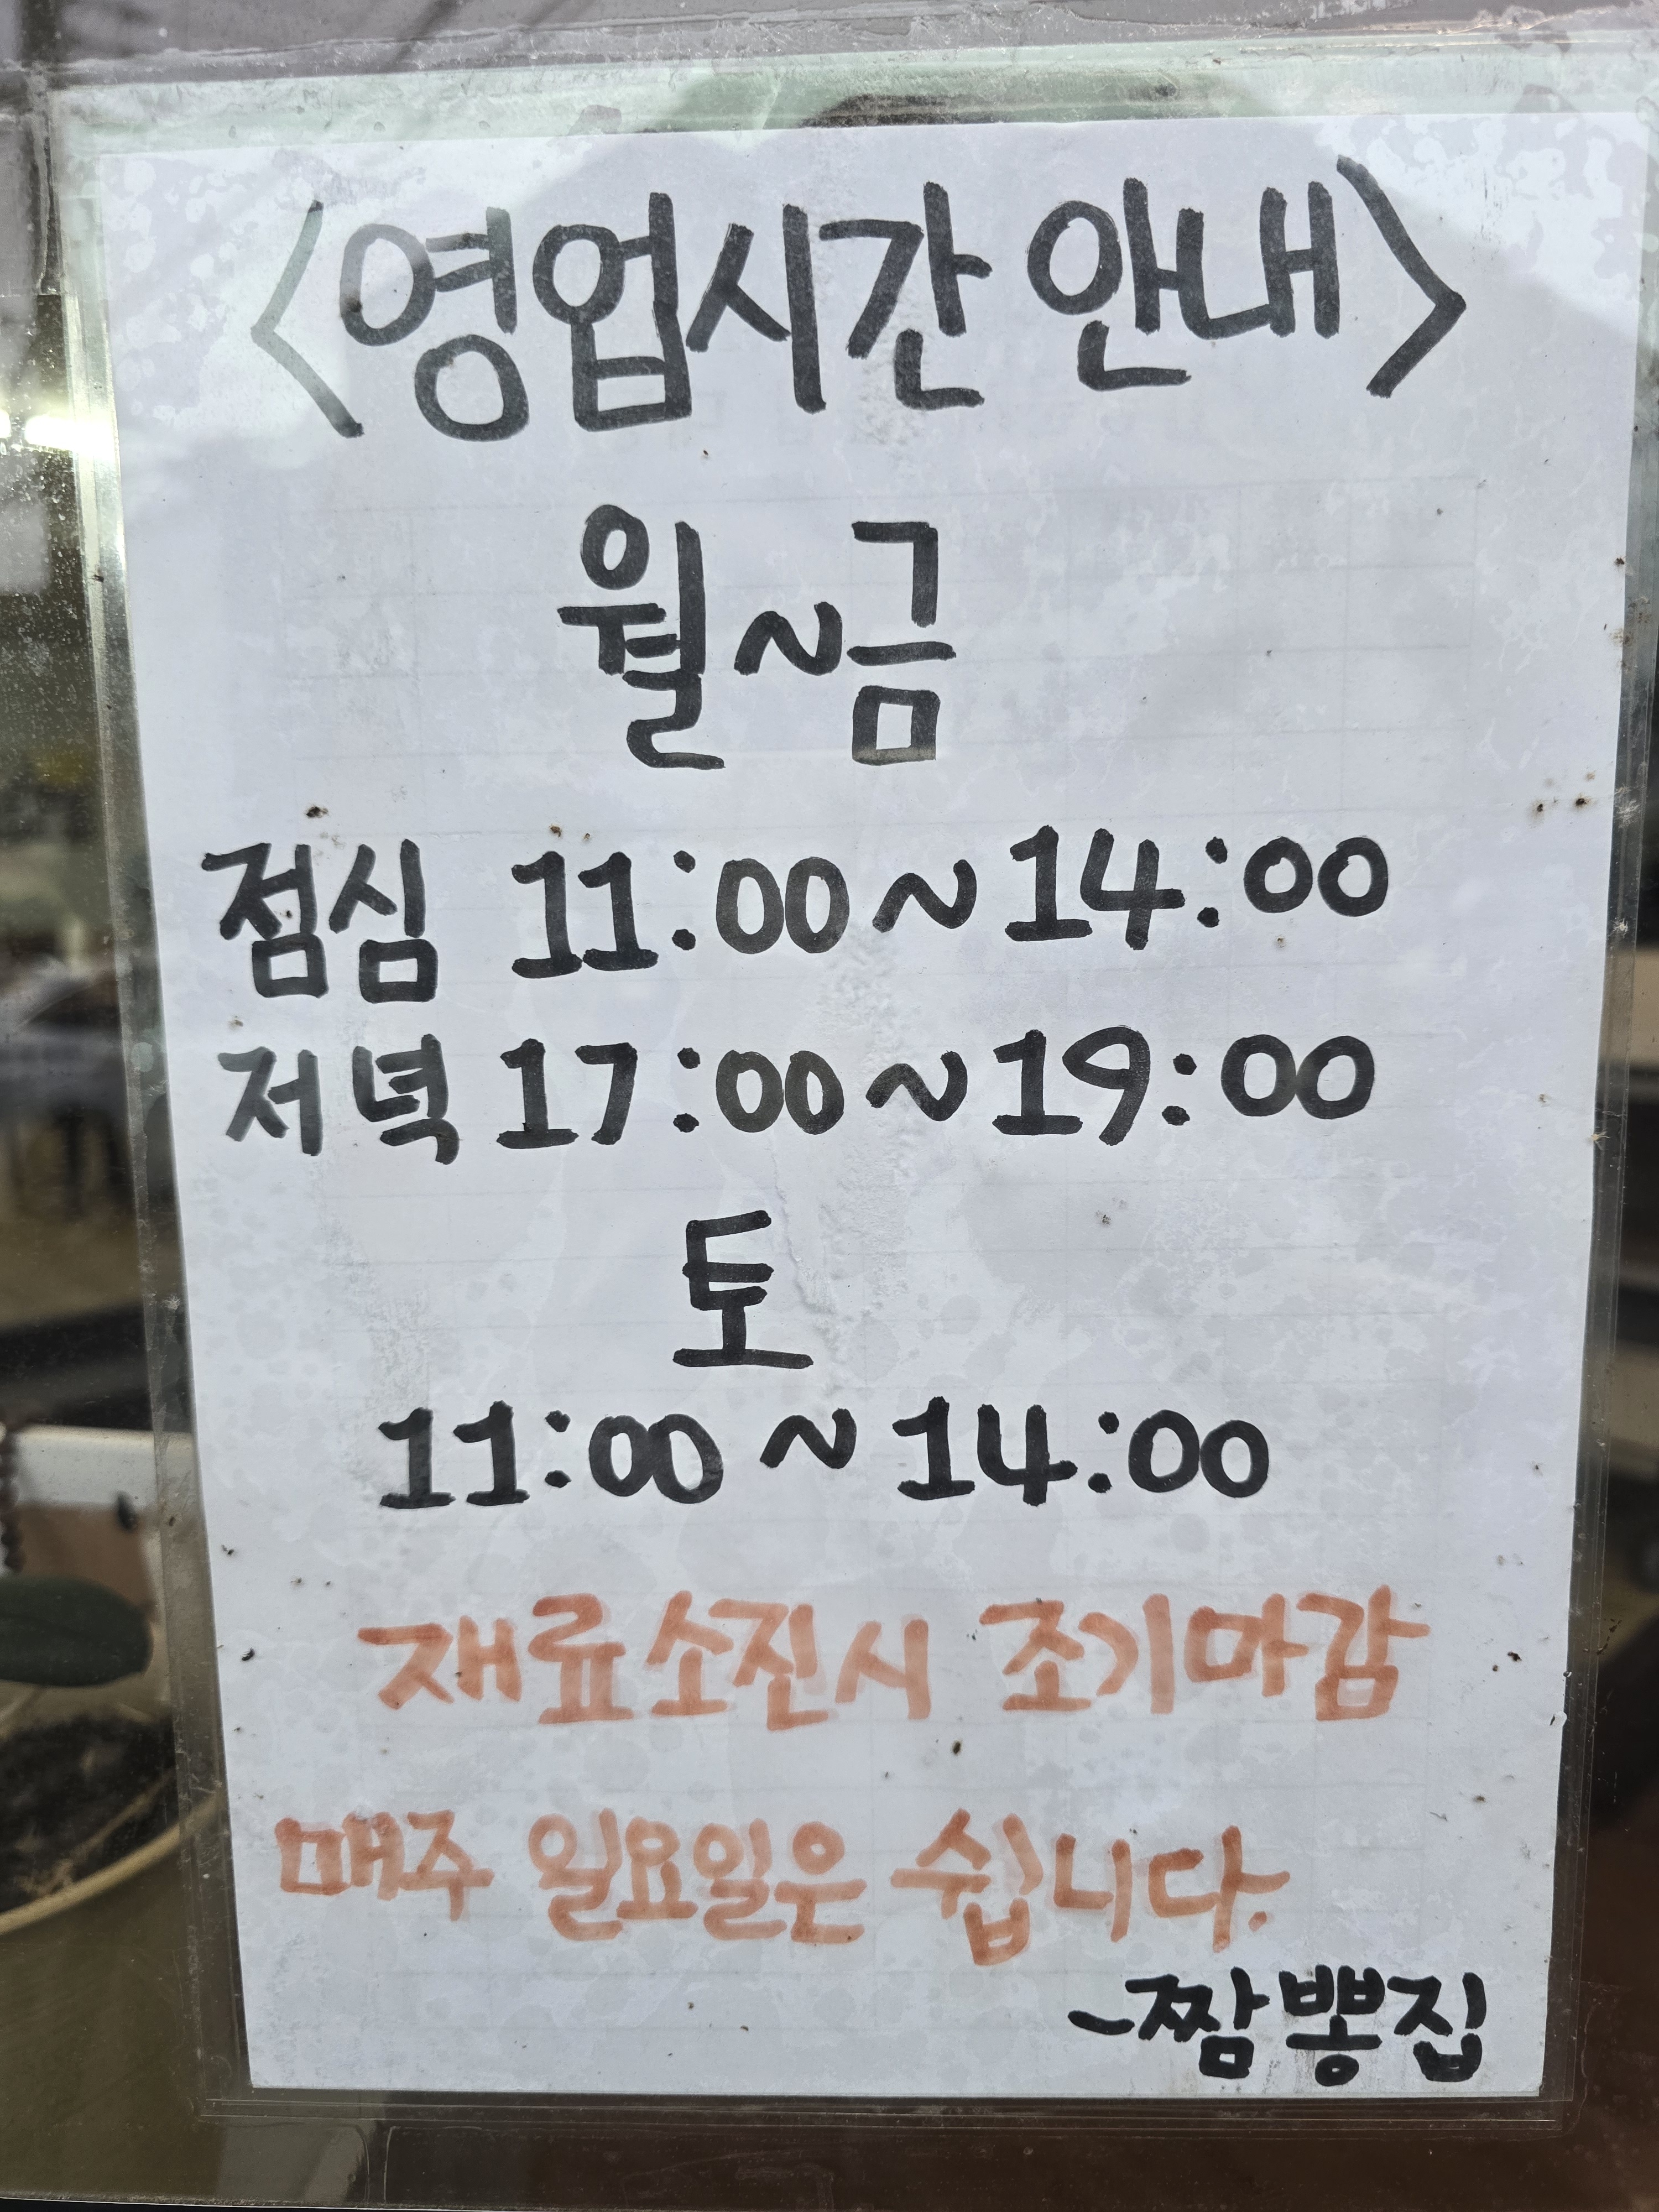 <영업시간 안내>
월~금
점심 11:00~14:00
저녁 17:00~19:00
토
11:00 ~ 14:00
재료소진시 조기마감
매주 일요일은 쉽니다.
-짬뽕집